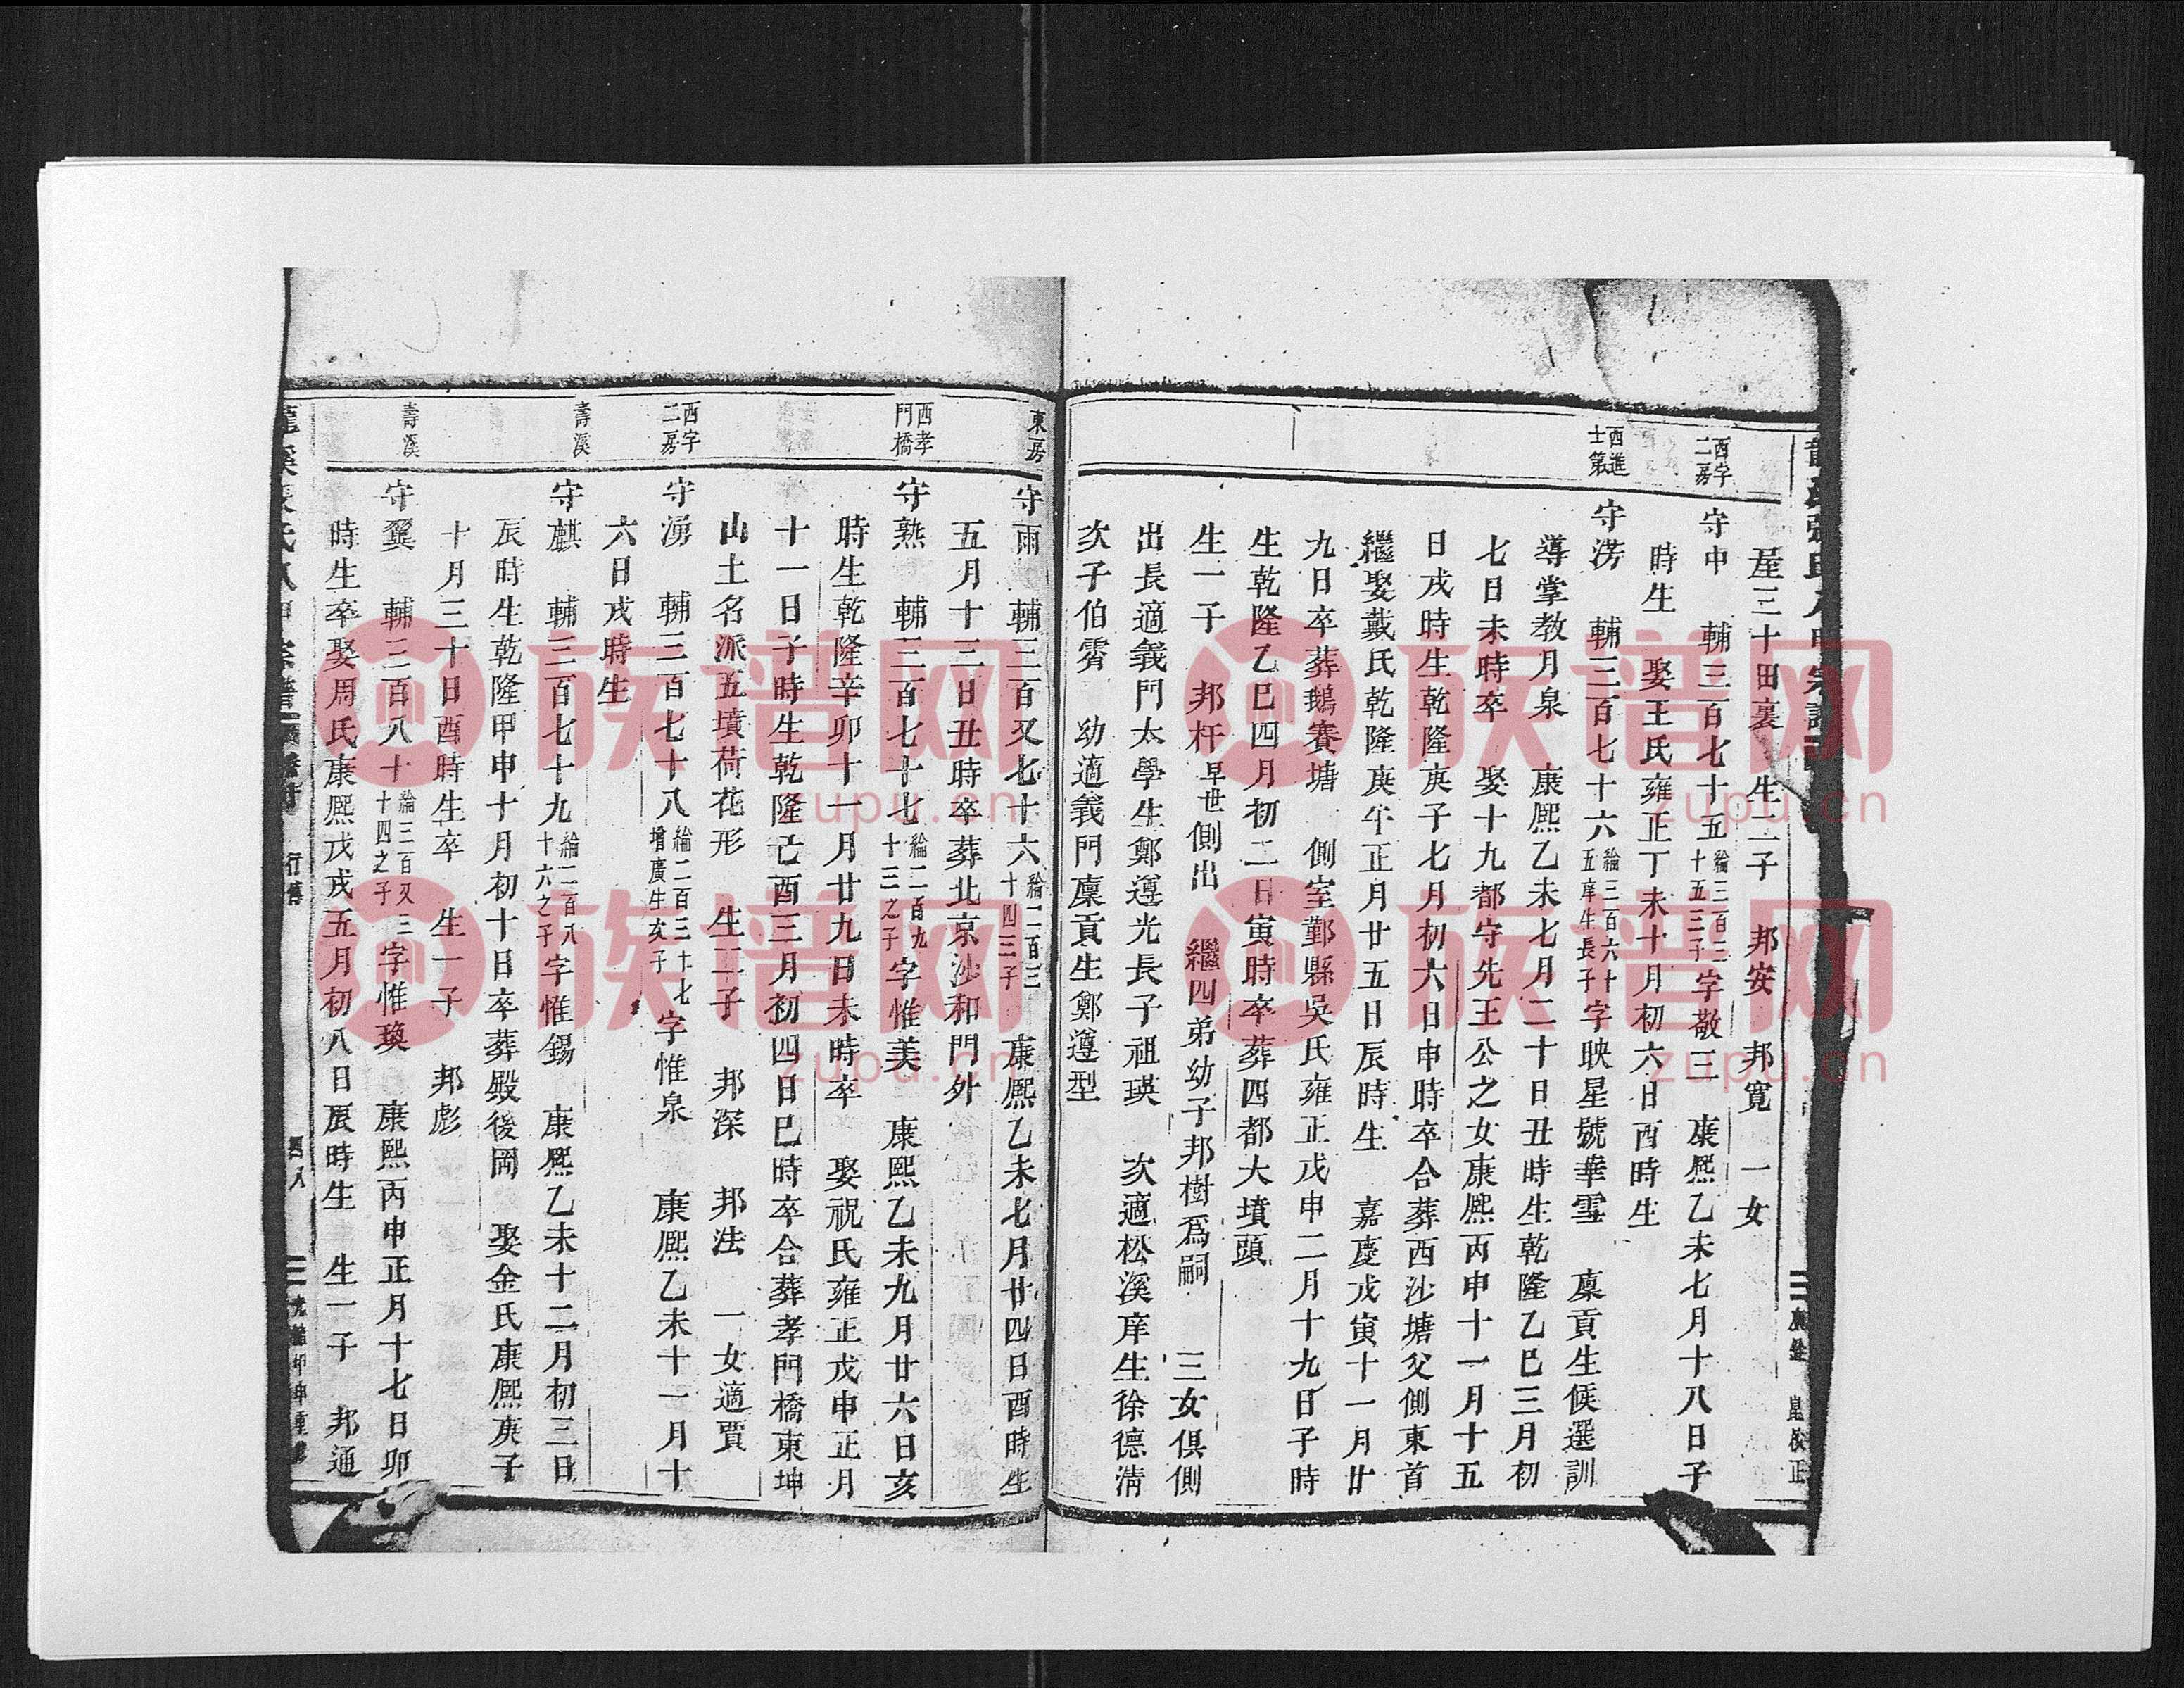 西字二房
西進士第
厔三十田裏 生二子 邦安 邦寛 一女
守申 輔三百七十五綸三百三十五三子字敬三 康熈乙未七月十八日子
時生 娶王氏雍正丁未十月初六日酉時生
守淓 輔三百七十六綸三百六十五庠生長子字映星號華雪 廩貢生候選訓
導掌教月泉 康熈乙未七月二十日丑時生乾隆乙巳三月初
七日未時卒 娶十九都守先王公之女康熈丙申十一月十五
日戌時生乾隆庚子七月初六日申時卒合葬西沙塘父側東首
繼娶戴氏乾隆庚午正月廿五日辰時生 嘉慶戊寅十一月廿
九日卒葬鵝賽塘 側室鄞縣吳氏雍正戊申二月十九日子時
生乾隆乙巳四月初二日寅時卒葬四都大墳頭
生一子 邦杆早世側出 繼四弟幼子邦樹爲嗣 三女俱側
出長適義門太學生鄭遵光長子祖瑛 次適松溪庠生徐德淸
次子伯霄 幼適義門廩貢生鄭遵型
東房
西孝門橋
西字二房
壽溪
壽溪
守雨 輔三百又七十六綸二百三十四三子 康熈乙未七月廿四日酉時生
五月十三日丑時卒葬北京沙和門外
守熟 輔三百七十七綸二百九十三之子字惟美 康熈乙未九月廿六日亥
時生乾隆辛卯十一月廿九日未時卒 娶祝氏雍正戊申正月
十一日子時生乾隆己酉三月初四日巳時卒合葬孝門橋東坤
山土名派五墳荷花形 生二子 邦深 邦法 一女適賈
守湧 輔三百七十八綸二百三十七增廣生次子字惟泉 康熈乙未十一月十
六日戌時生
守麒 輔三百七十九綸二百八十六之子字惟錫 康熈乙未十二月初三日
辰時生乾隆甲申十月初十日卒葬殿後岡 娶金氏康熈庚子
十月三十日酉時生卒 生一子 邦彪
守翼 輔三百八十綸三百又三十四之子字惟瑍 康熙丙申正月十七日卯
時生卒娶周氏康熈戊戌五月初八日辰時生 生一子 邦通